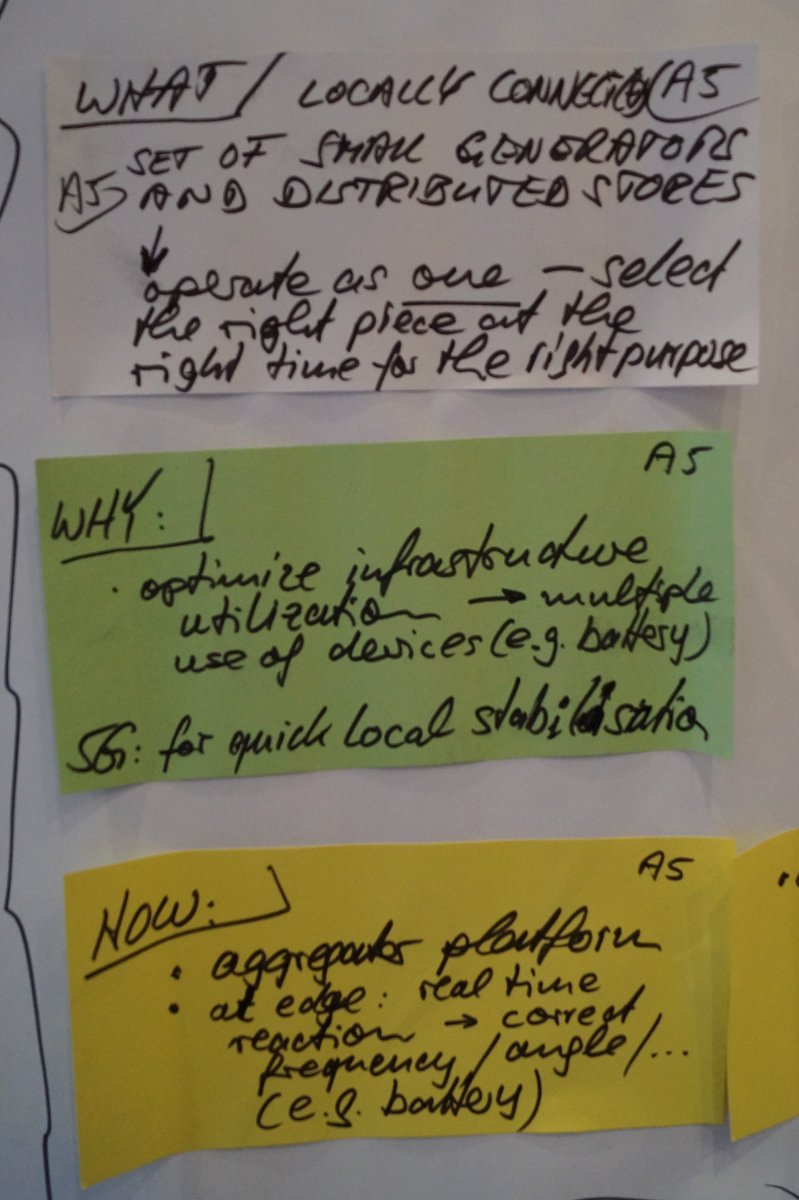 WHAT / LOCALLY CONNECTED A5
SET OF SMALL GENERATORS
A5 AND DISTRIBUTED STORES
↓
operate as one – select
the right piece at the
right time for the right purpose
A5
WHY:
· optimize infrastructure
utilization → multiple
use of devices (e.g. battery)
5G: for quick local stabilisation
A5
HOW:
• aggregator platform
• at edge: real time
reaction → correct
frequency/angle/...
(e.g. battery)